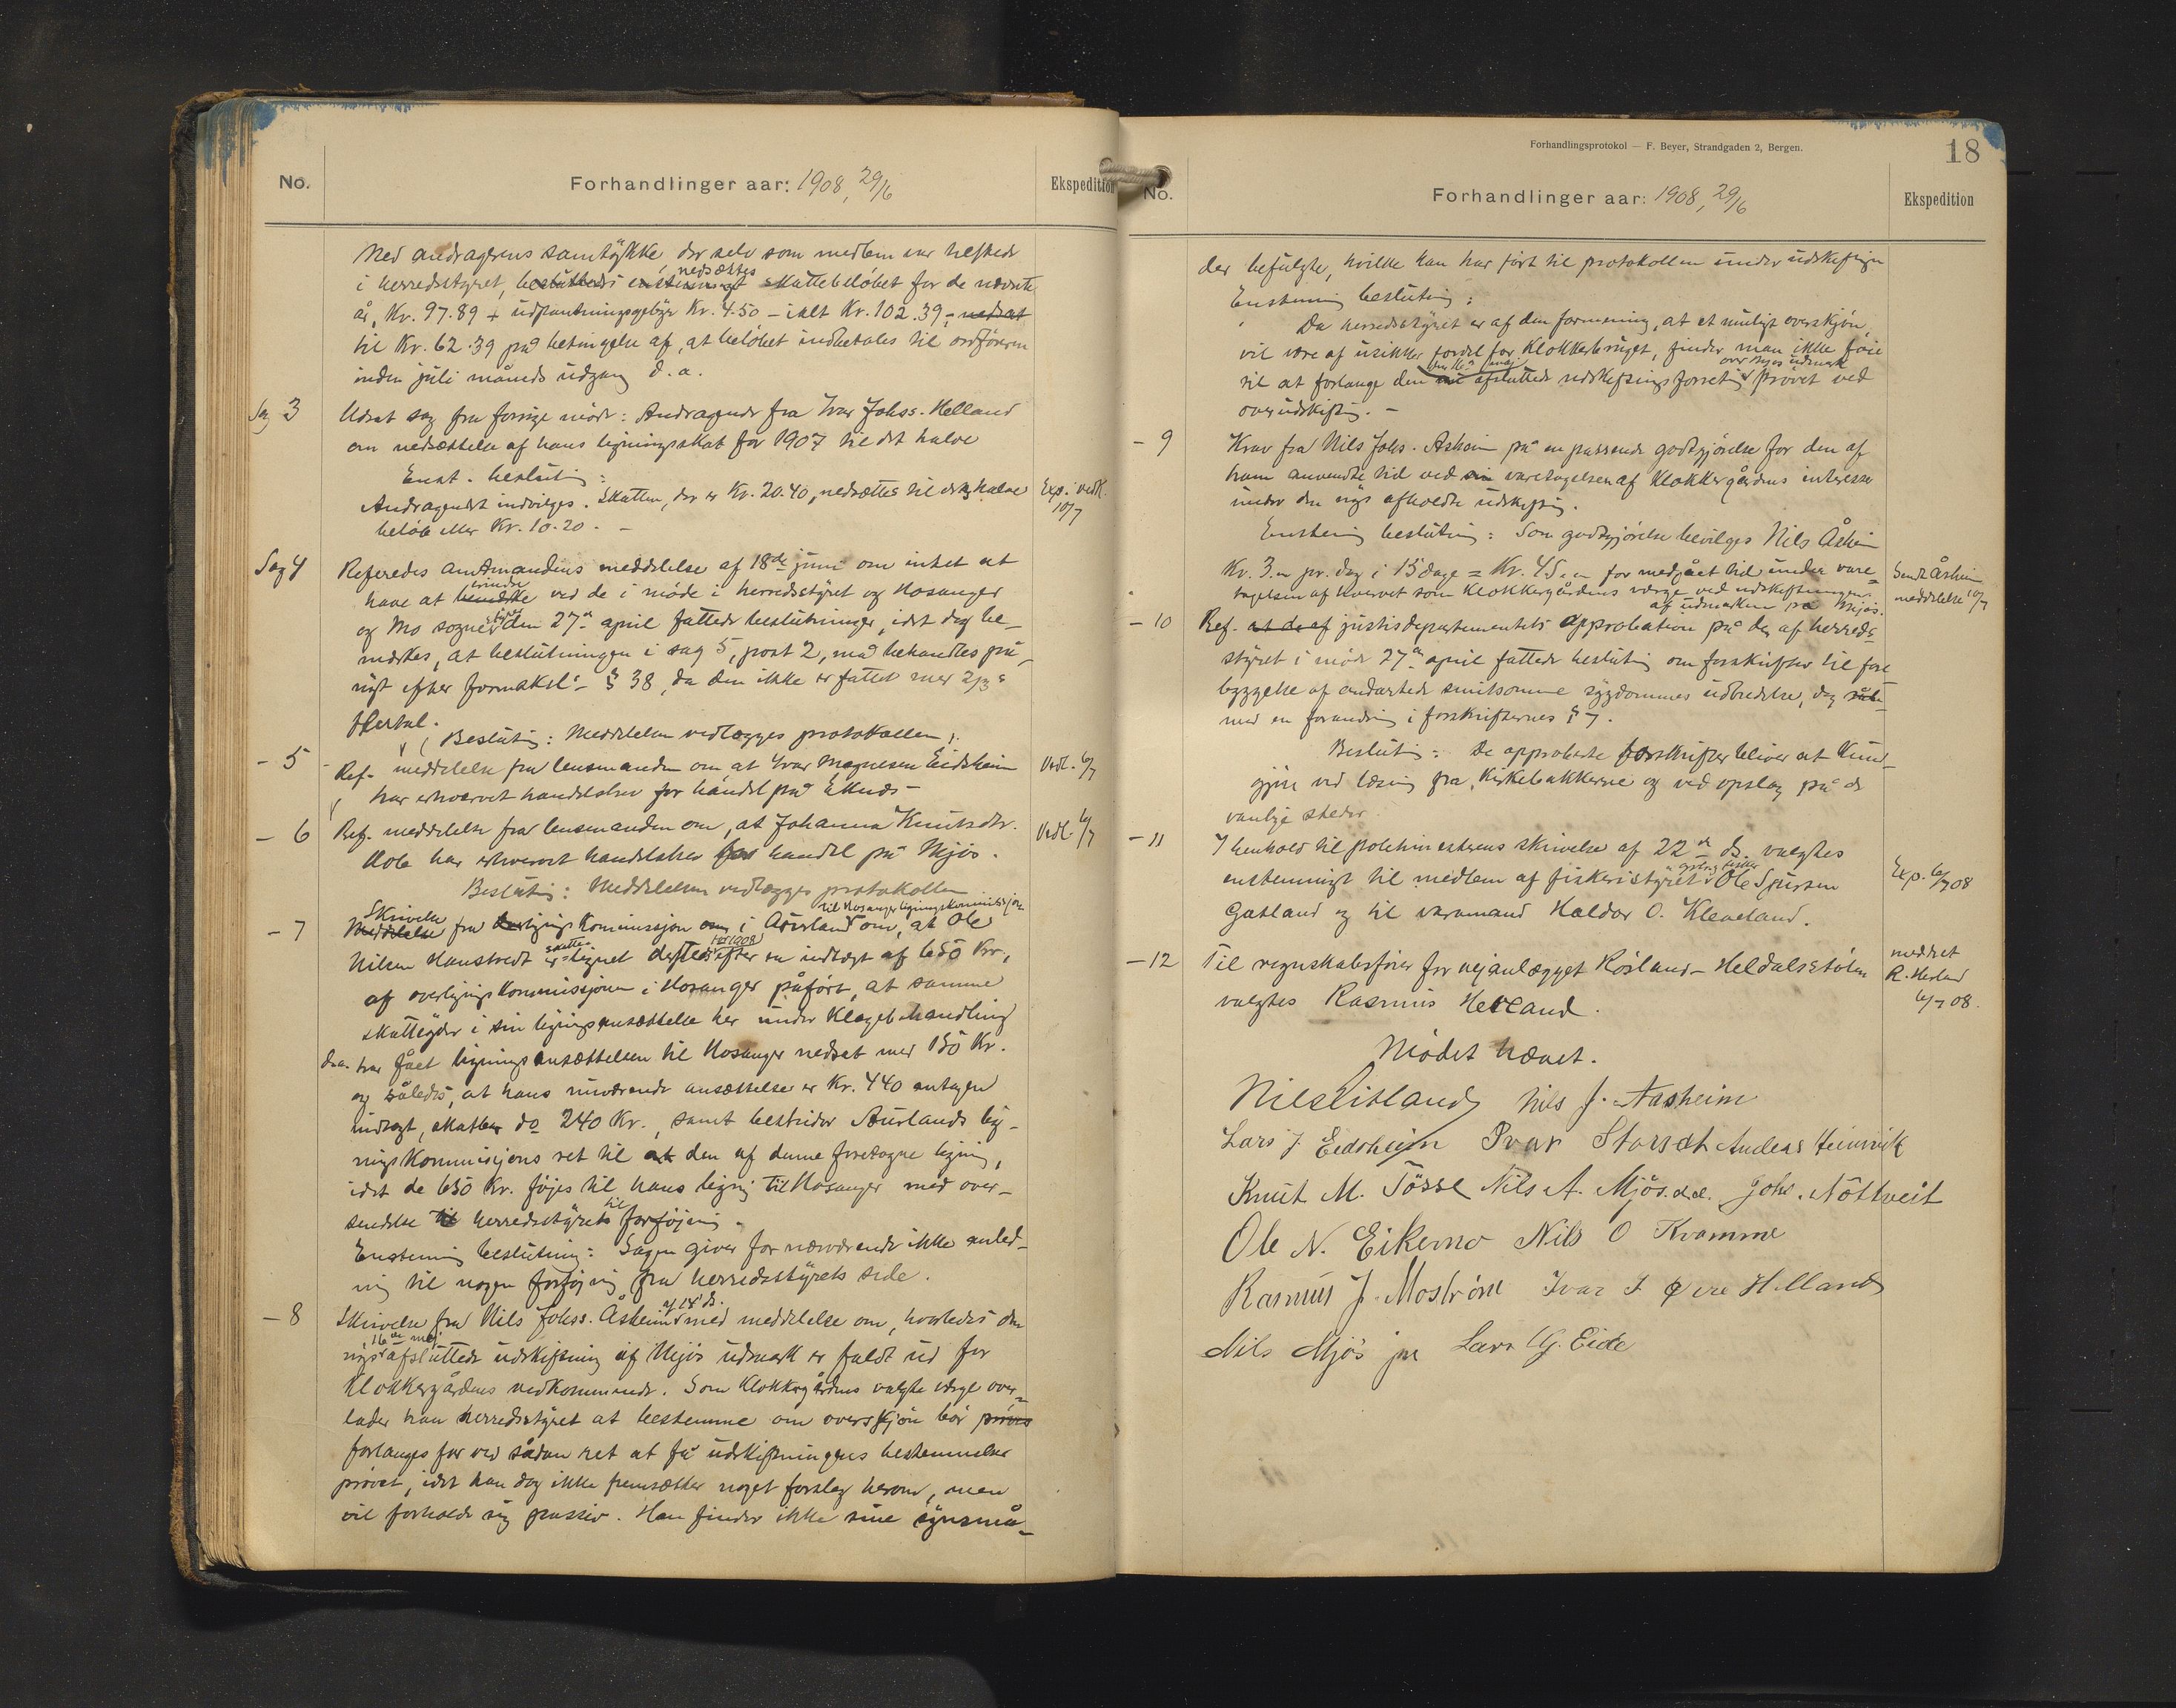 No.
Forhandlinger aar: 1908, 29/6
Ekspedition
Med andragerens samtykke der selv som medlem var tilstede
i herredsstyret, besluttedes enstemmigt nedsættes skattebeløbet for de nævnte
år, Kr. 97.89 + udpantningsgebyr Kr. 4.50 – ialt Kr. 102.39, nedsat
til Kr. 62.39 på betingelse af, at beløbet indbetales til ordføreren
inden juli måneds udgang d. a.
Sag 3 Udsat sag fra forrige møde: Andragende fra Ivar Johss. Helland
om nedsættelse af hans ligningsskat for 1907 til det halve
Enst. beslutning:
Andragendet indvilges. Skatten, der er Kr. 20.40, nedsættes til det halve
beløb eller Kr. 10.20. –
Exp. vedk. 10/7
Sag 4 Referedes amtmandens meddelelse af 18de juni om intet at
have at bemærke erindre ved de i møde i herredsstyret og Hosanger
og Mo sognestyre den 27de april fattede beslutninger, idet dog be-
mærkes, at beslutningen i sag 5, post 2, må behandles på
nyt efter formandsl. § 38, da den ikke er fattet med 2/3s
flertal.
Beslutning: Meddelelsen vedlægges protokollen.
– 5 Ref. meddelelse fra lensmanden om at Ivar Magnesen Eidsheim
har erhvervet handelsbrev for handel på Eknes –
Vedl. 6/7
– 6 Ref. meddelelse fra lensmanden om, at Johanna Knutsdtr.
Kole har erhvervet handelsbrev for handel på Mjøs.
Vedl. 6/7
Beslutning: Meddelelsen vedlægges protokollen
– 7 Meddelelse Skrivelse fra ligningskommissjon i Aurland til Hosanger ligningskommissjon om, at Ole
Nilsen Haustvedt er skatte-lignet dersteds for 1908 efter en indtægt af 650 Kr,
af overligningskommissjonen i Hosanger påført, at samme
skatteyder i sin ligningsansættelse her under klagebehandling
har fået ligningsansættelsen til Hosanger nedsat med 150 Kr.
og således, at hans nuværende ansættelse er Kr. 440 antagen
indtægt, skatbar do 240 Kr., samt bestrider Aurlands lig-
ningskommisjons ret til at den af denne foretagne ligning,
idet de 650 Kr. føjes til hans ligning til Hosanger med over-
sendelse til herredsstyret til forføjning.
Enstemmig beslutning: Sagen giver for nærværende ikke anled-
ning til nogen forføjning fra herredsstyrets side.
– 8 Skrivelse fra Nils Johss. Åsheim af 14' ds. med meddelelse om, hvorledes den
nys 16de maj afsluttede udskiftning af Mjøs udmark er faldt ud for
Klokkergårdens vedkommende. Som Klokkergårdens valgte værge over-
lader han herredsstyret at bestemme om overskjøn bør prøves
forlanges for ved sådan ret at få udskiftningens bestemmelser
prøvet, idet han dog ikke fremsætter noget forslag herom, men
vil forholde sig passiv. Han finder ikke sine synsmå-
Forhandlingsprotokol — F. Beyer, Strandgaden 2, Bergen.
18
No.
Forhandlinger aar: 1908, 29/6
Ekspedition
der befulgte, hvilke han har ført til protokollen under udskiftningen
Enstemmig beslutning:
Da herredsstyret er af den formening, at et muligt overskjøn,
vil være af usikker fordel for Klokkerbruget, finder man ikke føie
til at forlange den nu den 16de maj afsluttede udskiftningsforretning over Mjøs udmark prøvet ved
overudskiftning. –
– 9 Krav fra Nils Johs. Åsheim på en passende godtgjørelse for den af
ham anvendte tid ved sin varetagelsen af Klokkergårdens interesser
under den nys afholdte udskiftning.
Enstemmig beslutning: Som godtgjørelse bevilges Nils Åsheim
Kr. 3.00 pr. dag i 15 dage = Kr. 45.00 for medgået tid under vare-
tagelsen af hvervet som Klokkergårdens værge ved udskiftningen
af udmarken på Mjøs.
Sendt Åsheim
meddelelse 10/7
– 10 Ref. at de af justisdepartementets approbation på den af herreds-
styret i møde 27de april fattede beslutning om forskrifter til fore
byggelse af ondartede smitsomme sygdommes udbredelse, dog
med en forandring i forskrifternes § 7.
Beslutning: De approberte forskrifter bliver at kund-
gjøre ved læsning fra kirkebakkerne og ved opslag på de
vanlige steder.
– 11 I henhold til politimesterens skrivelse af 22de ds. valgtes
enstemmigt til medlem af fiskeristyret Ole Sjursen
Gatland og til varamand Haldor O. Kleiveland.
Exp. 6/7 08
– 12 Til regnskabsfører for vejanlægget Røsland – Heldalsstølen
valgtes Rasmus Helland.
meddelt
R. Helland
6/7 08.
Mødet hævet.
Nils Eitland Nils J. Aasheim
Lars J Eidsheim Ivar Starset Andeas Heimvik
Knut M. Tösse Nils A. Mjös. d.e. Johs. Nöttveit
Ole N. Eikemo Nils O Kvamme
Rasmus J. Mostrøm Ivar I Øvre Helland
Nils Mjös jn Lars G. Eide